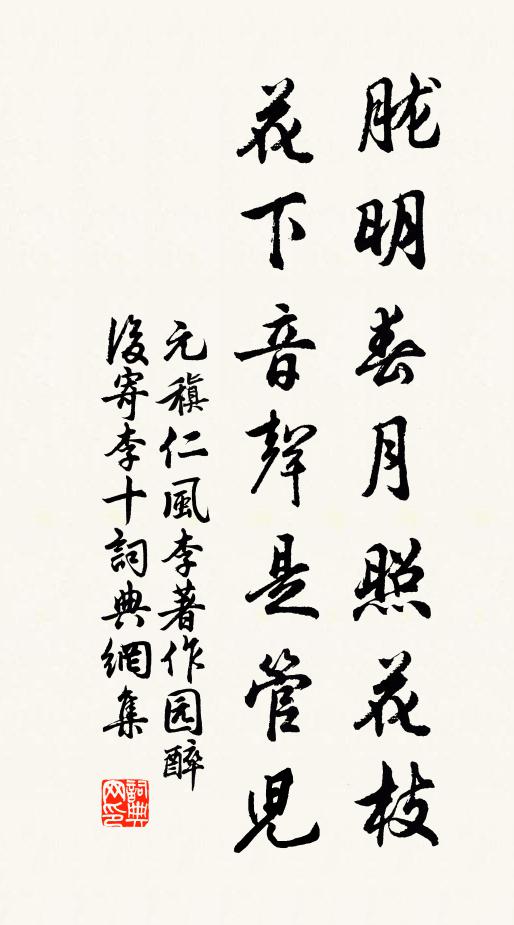 胧明春月照花枝
花下音聲是管兒
元稹仁風李著作园醉
後寄李十詞典網集
詞典网印